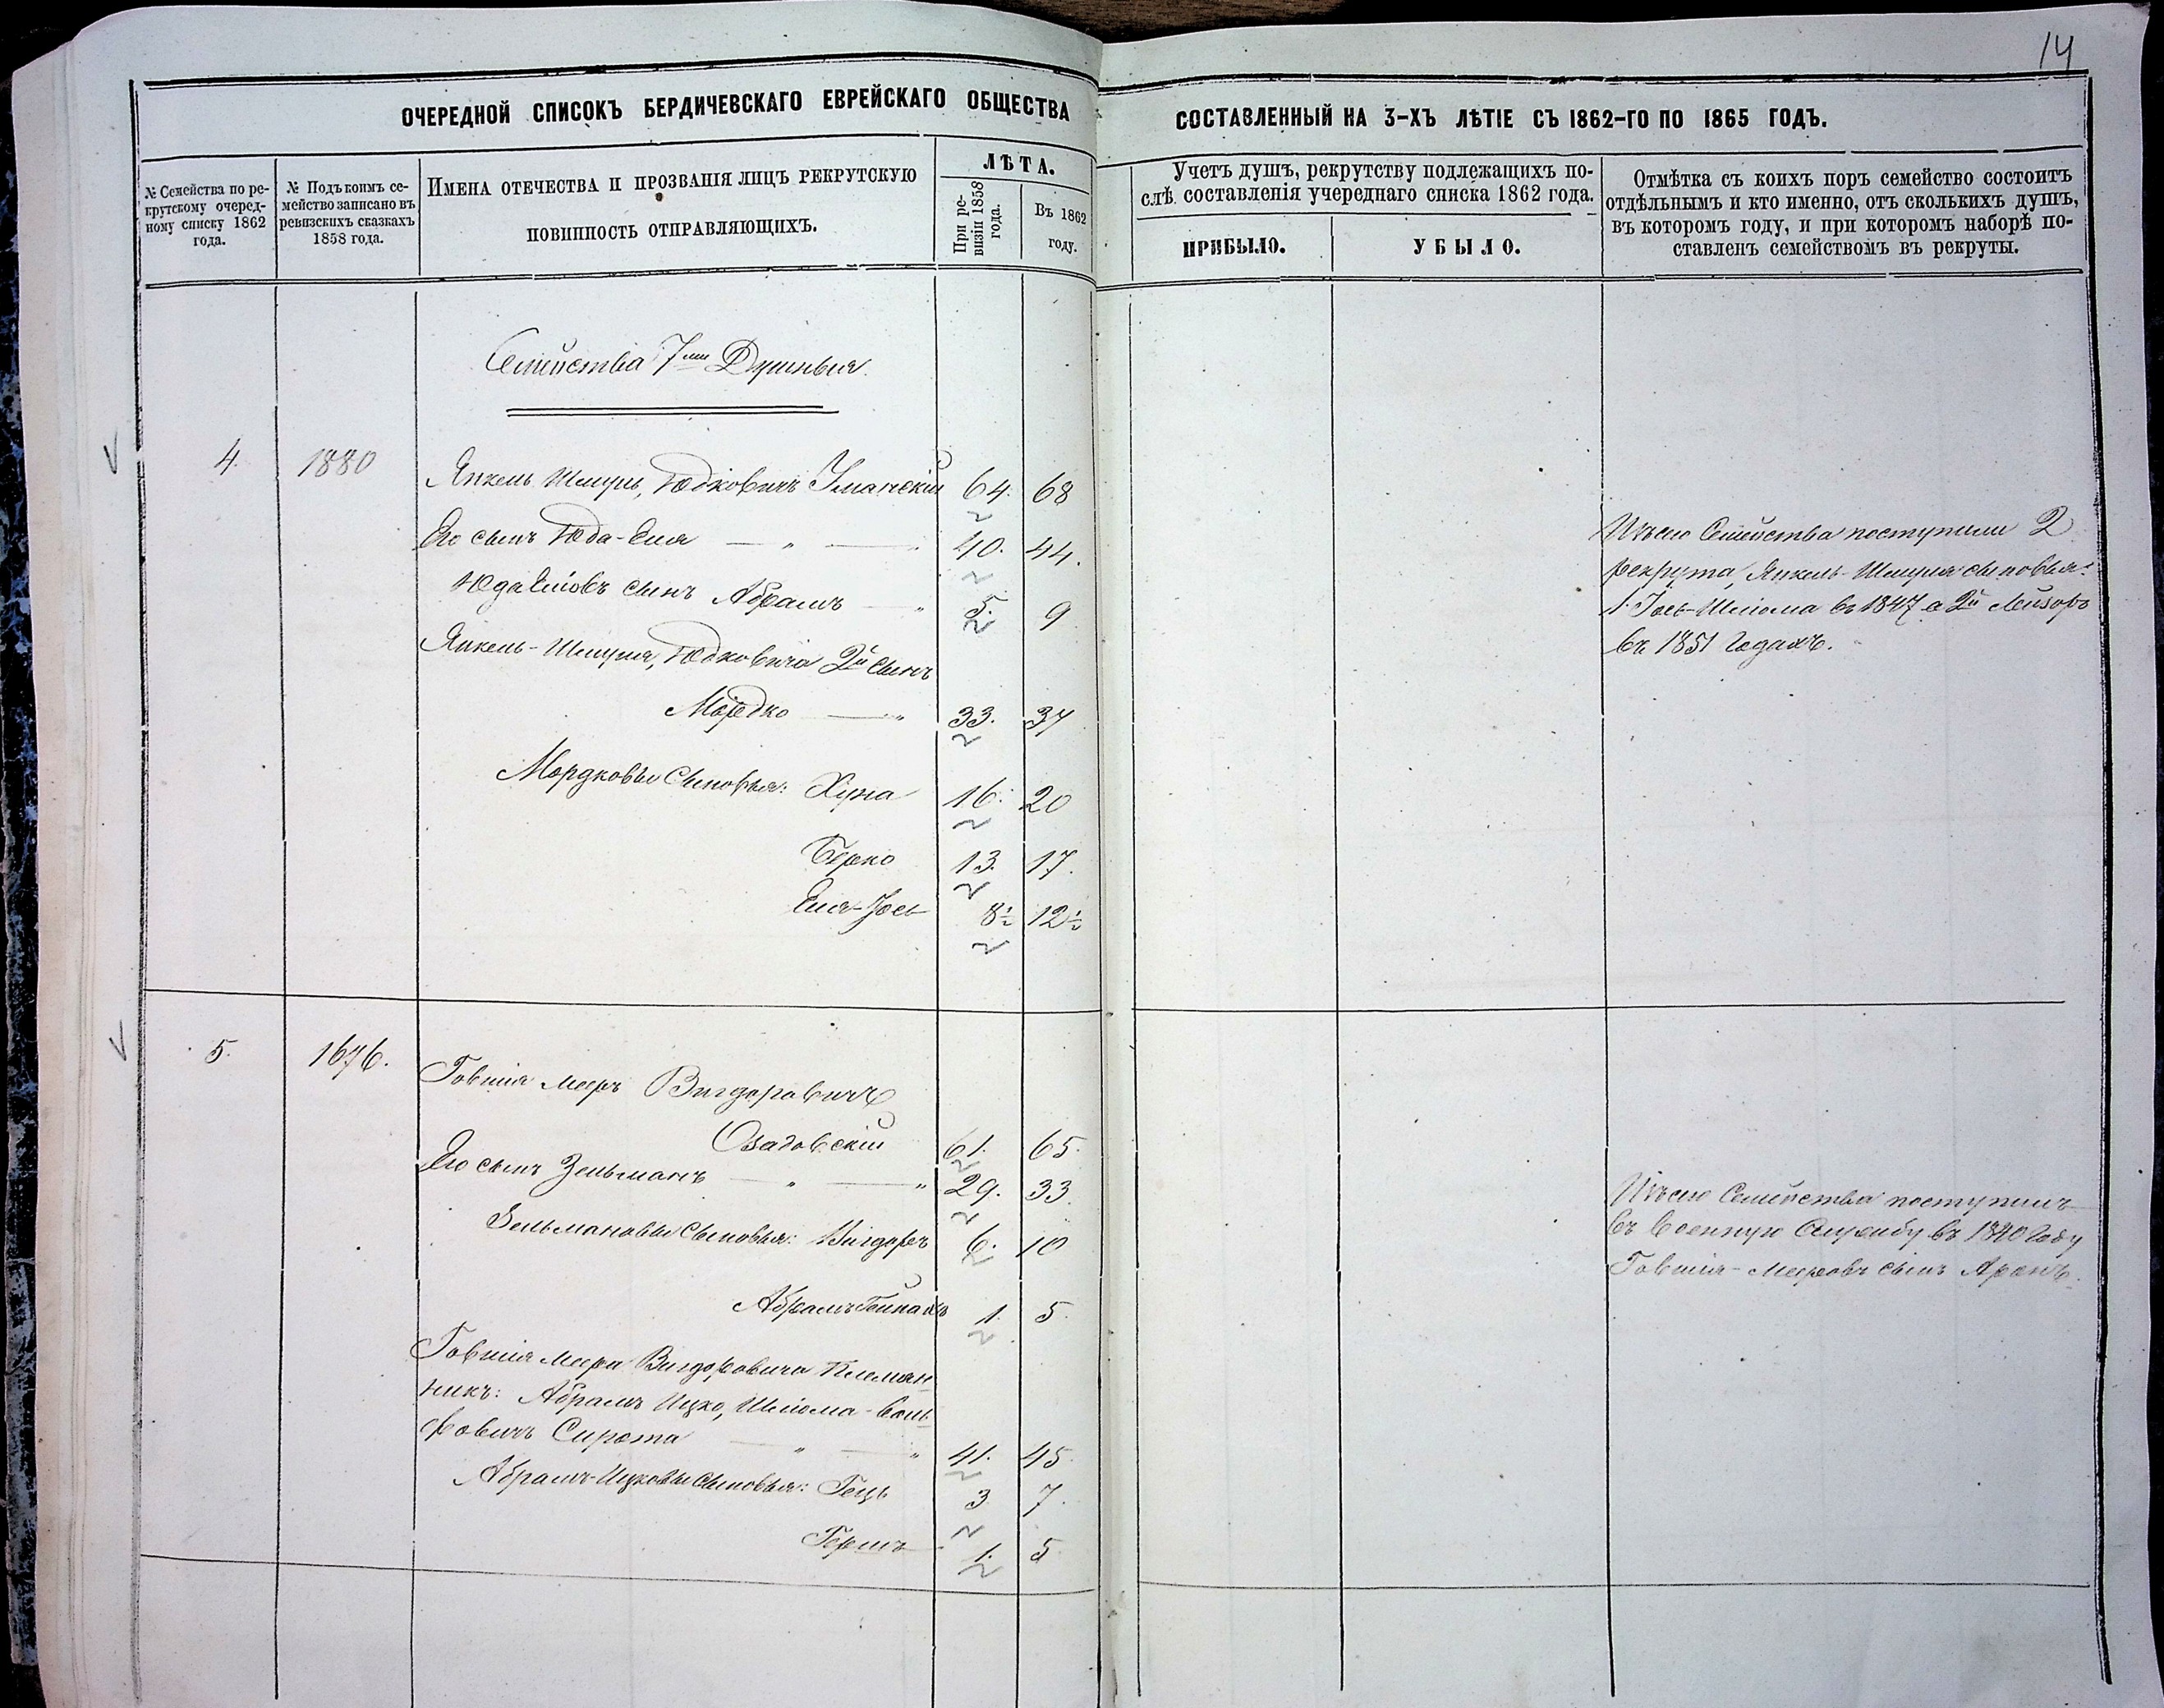 14
ОЧЕРЕДНОЙ СПИСОКЪ БЕРДИЧЕВСКАГО ЕВРЕЙСКАГО ОБЩЕСТВА
СОСТАВЛЕННЫЙ НА 3-ХЪ ЛѢТІЕ СЪ 1862-ГО ПО 1865 ГОДЪ.
№ Семейства по ре-
крутскому очеред-
ному списку 1862
года.
№ Подъ коимъ се-
мейство записано въ
ревизскихъ сказкахъ
1858 года.
ИМЕНА ОТЕЧЕСТВА И ПРОЗВАНІЯ ЛИЦЪ РЕКРУТСКУЮ
ПОВИННОСТЬ ОТПРАВЛЯЮЩИХЪ.
ЛѢТА.
При ре-
визіи 1858
года.
Въ 1862
году.
Учетъ душъ, рекрутству подлежащихъ по-
слѣ составленія учереднаго списка 1862 года.
ПРИБЫЛО.
УБЫЛО.
Отмѣтка съ коихъ поръ семейство состоитъ
отдѣльнымъ и кто именно, отъ сколькихъ душъ,
въ которомъ году, и при которомъ наборѣ по-
ставленъ семействомъ въ рекруты.
Семейства 7ми Душныя
4. 1880 Янкель Шмуль, Юдковичъ Уманскій 64. 68
Его сынъ Юда-Еля — " — " 40. 44.
Юда Еліовъ сынъ Абрамъ — " 5. 9
Янкель-Шмуля, Юдковича 2й сынъ
Мордко — " 33. 37
Мордковы Сыновья: Хуна 16. 20
Берко 13. 17.
Еля-Іось 8½ 12½
Изъ сего Семейства поступили 2
рекрута, Янкель-Шмуля сыновья:
1. Іось-Шліома въ 1847 а 2й Лейзоръ
въ 1851 годахъ.
5. 1676. Говшія Мееръ Вигдоровичъ
Озадовскій 61. 65.
Его сынъ Зельманъ — " — " 29. 33.
Зельмановы Сыновья: Вигдоръ 6. 10
Абрамъ Гейнахъ 1. 5.
Говшія Меера Вигдоровича Племян-
никъ: Абрамъ Ицко, Шліома-Воль-
фовичъ Сирота — " — " 41. 45.
Абрамъ-Ицковы Сыновья: Гецъ 3 7.
Гершъ 1. 5
Изъ сего Семейства поступилъ
въ военную Службу въ 1840 году
Говшія-Мееровъ сынъ Аронъ.